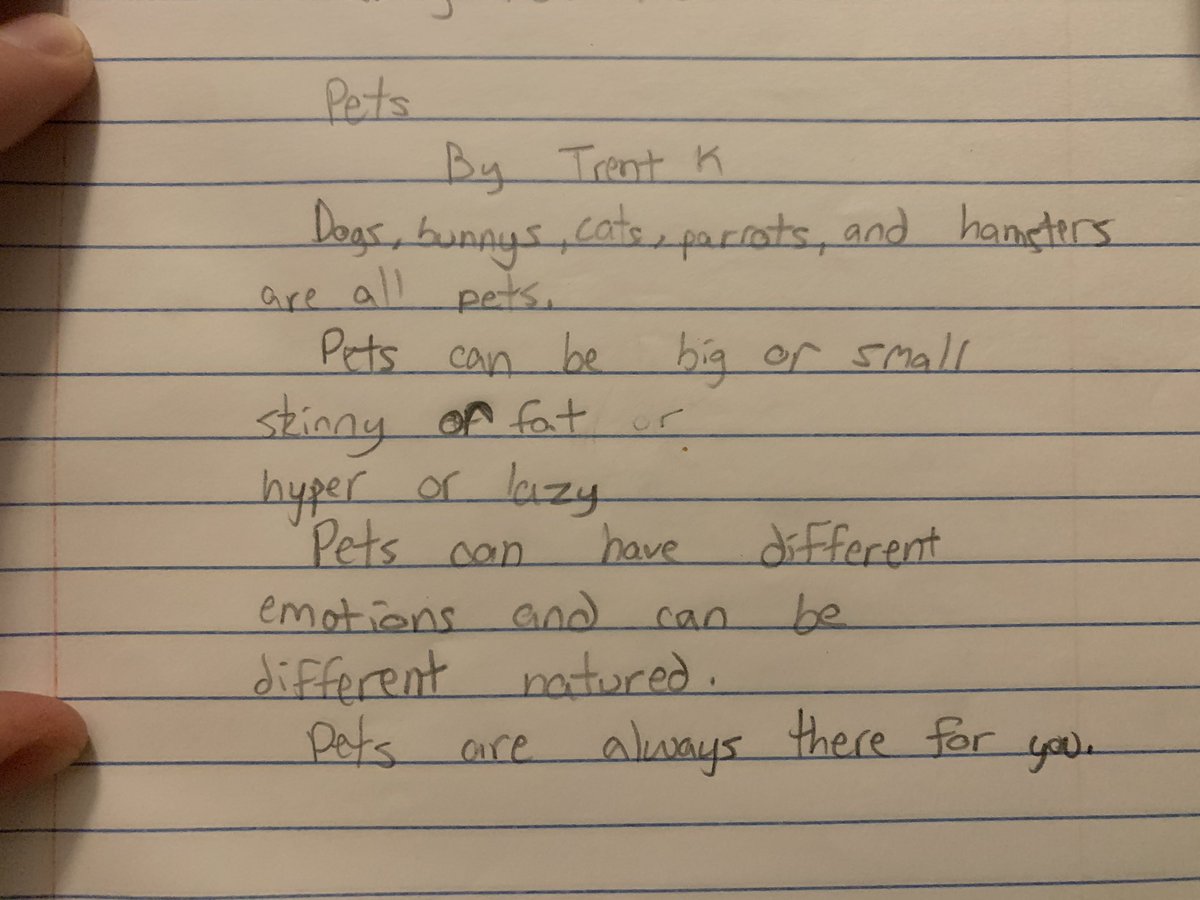 Pets
By Trent K
Dogs, bunnys, cats, parrots, and hamsters
are all pets.
Pets can be big or small
skinny or fat or
hyper or lazy
Pets can have different
emotions and can be
different natured.
Pets are always there for you.